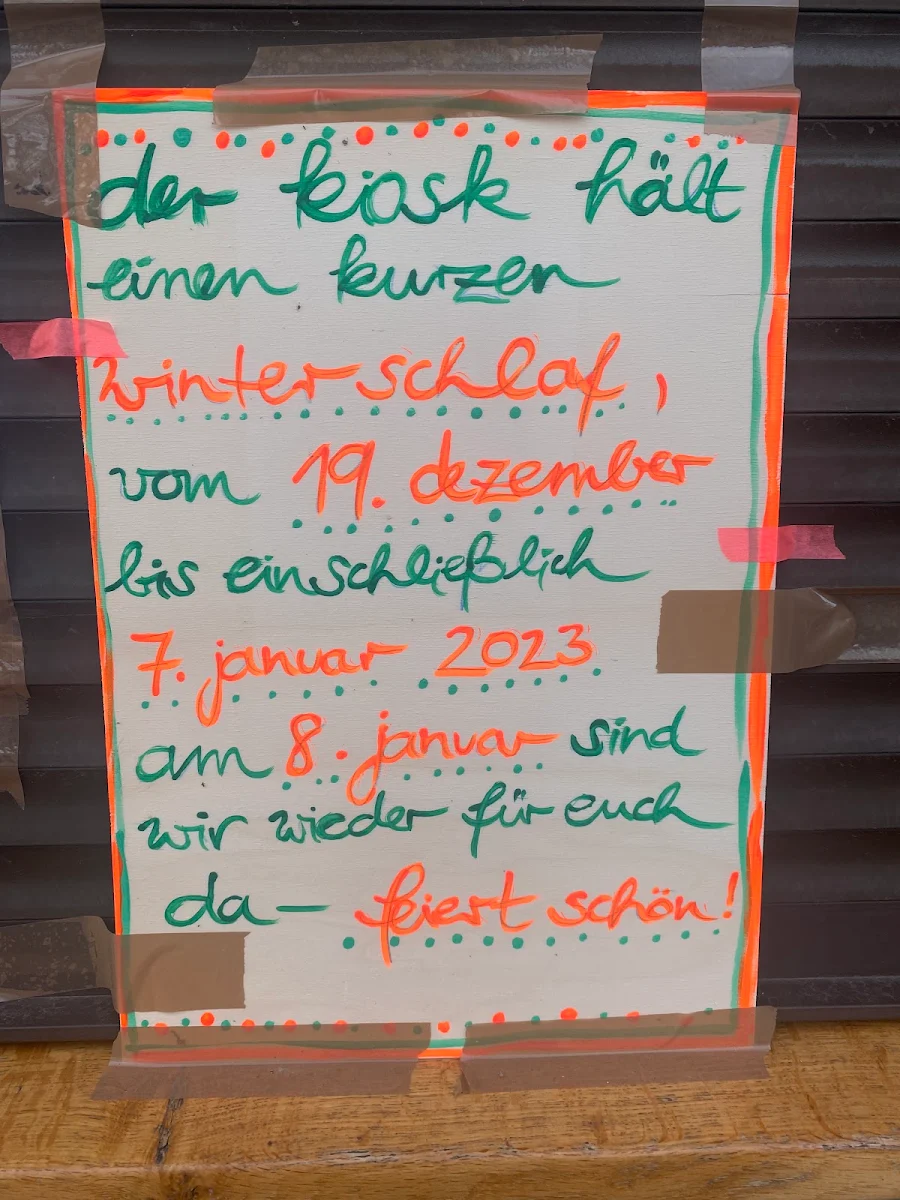 der kiosk hält
einen kurzen
winterschlaf,
vom 19. dezember
bis einschließlich
7. januar 2023
am 8. januar sind
wir wieder für euch
da — feiert schön!